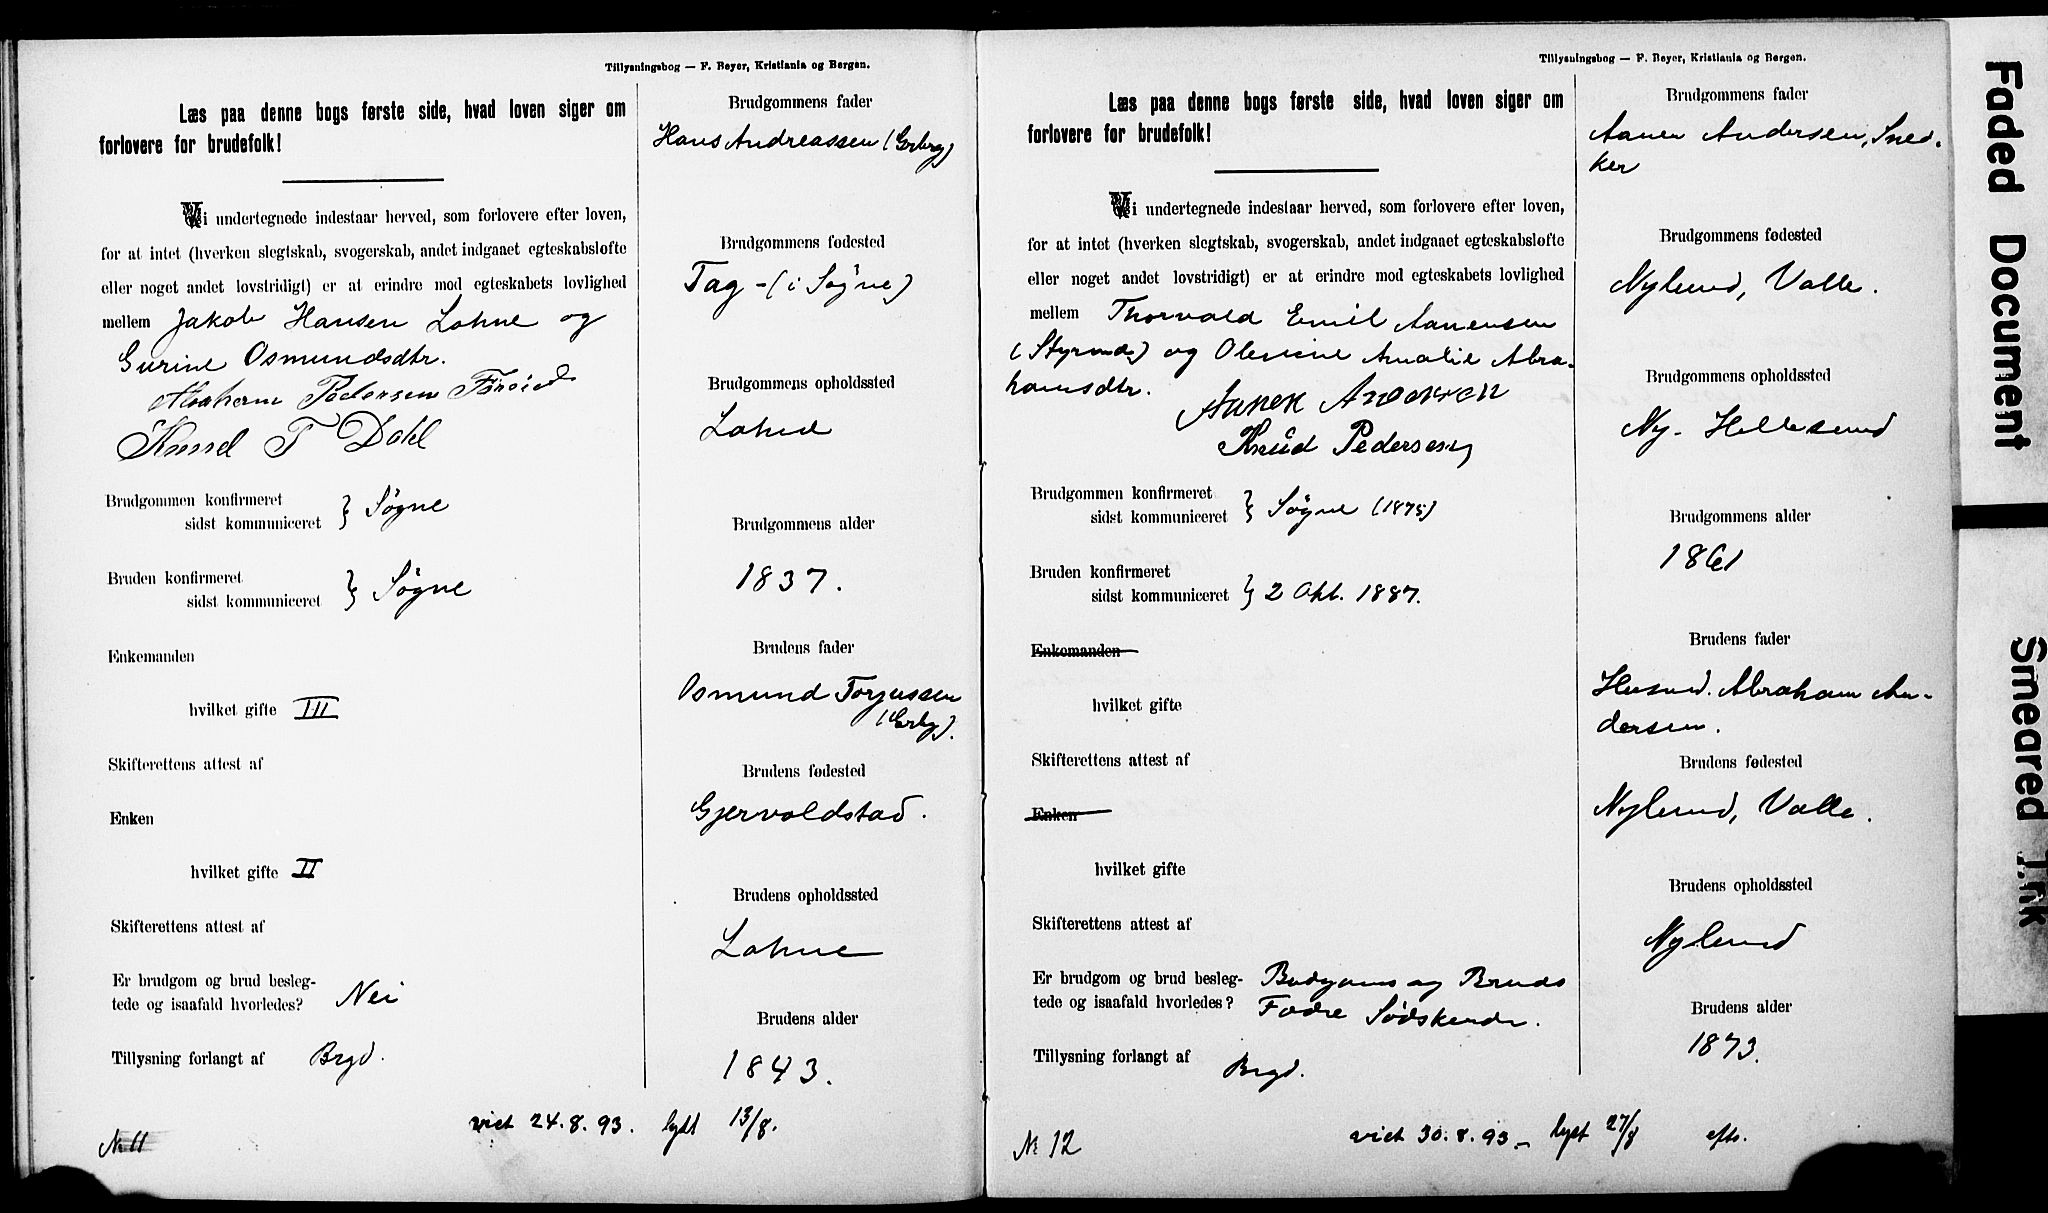 Tillysningsbog — F. Beyer, Kristiania og Bergen.
Læs paa denne bogs første side, hvad loven siger om
forlovere for brudefolk!
Vi undertegnede indestaar herved, som forlovere efter loven,
for at intet (hverken slegtskab, svogerskab, andet indgaaet egteskabsløfte
eller noget andet lovstridigt) er at erindre mod egteskabets lovlighed
mellem Jakob Hansen Lohne og
Gurine Osmundsdtr.
Abraham Pedersen
Knud T Dahl
Brudgommen konfirmeret
sidst kommuniceret } Søgne
Bruden konfirmeret
sidst kommuniceret } Søgne
Enkemanden
hvilket gifte III
Skifterettens attest af
Enken
hvilket gifte II
Skifterettens attest af
Er brudgom og brud besleg-
tede og isaafald hvorledes? Nei
Tillysning forlangt af Brgd.
Brudgommens fader
Hans Andreassen
Brudgommens fødested
Tag - (i Søgne)
Brudgommens opholdssted
Lohne
Brudgommens alder
1837.
Brudens fader
Osmund Torjussen
Brudens fødested
Gjervoldstad.
Brudens opholdssted
Lohne
Brudens alder
1843.
№ 11 viet 24.8.93. lyst 13/8.
Tillysningsbog — F. Beyer, Kristiania og Bergen.
Læs paa denne bogs første side, hvad loven siger om
forlovere for brudefolk!
Vi undertegnede indestaar herved, som forlovere efter loven,
for at intet (hverken slegtskab, svogerskab, andet indgaaet egteskabsløfte
eller noget andet lovstridigt) er at erindre mod egteskabets lovlighed
mellem Thorvald Emil Aanensen
(Styrmd.) og Olevine Amalie Abra-
hamsdtr.
Aanen Andersen
Knud Pedersen
Brudgommen konfirmeret
sidst kommuniceret } Søgne (1875)
Bruden konfirmeret
sidst kommuniceret } 2 Okt. 1887.
Enkemanden
hvilket gifte
Skifterettens attest af
Enken
hvilket gifte
Skifterettens attest af
Er brudgom og brud besleg- Brudgoms og Bruds
tede og isaafald hvorledes? Fædre Sødskende.
Tillysning forlangt af Brgd.
Brudgommens fader
Aanen Andersen, Sned-
ker
Brudgommens fødested
Nylund, Valle.
Brudgommens opholdssted
Ny-Hellesund
Brudgommens alder
1861
Brudens fader
Husmd. Abraham An-
dersen.
Brudens fødested
Nylund, Valle.
Brudens opholdssted
Nylund
Brudens alder
1873.
№ 12 viet 30.8.93 - lyst 27/8 eftr.
Faded Document
Smeared Ink